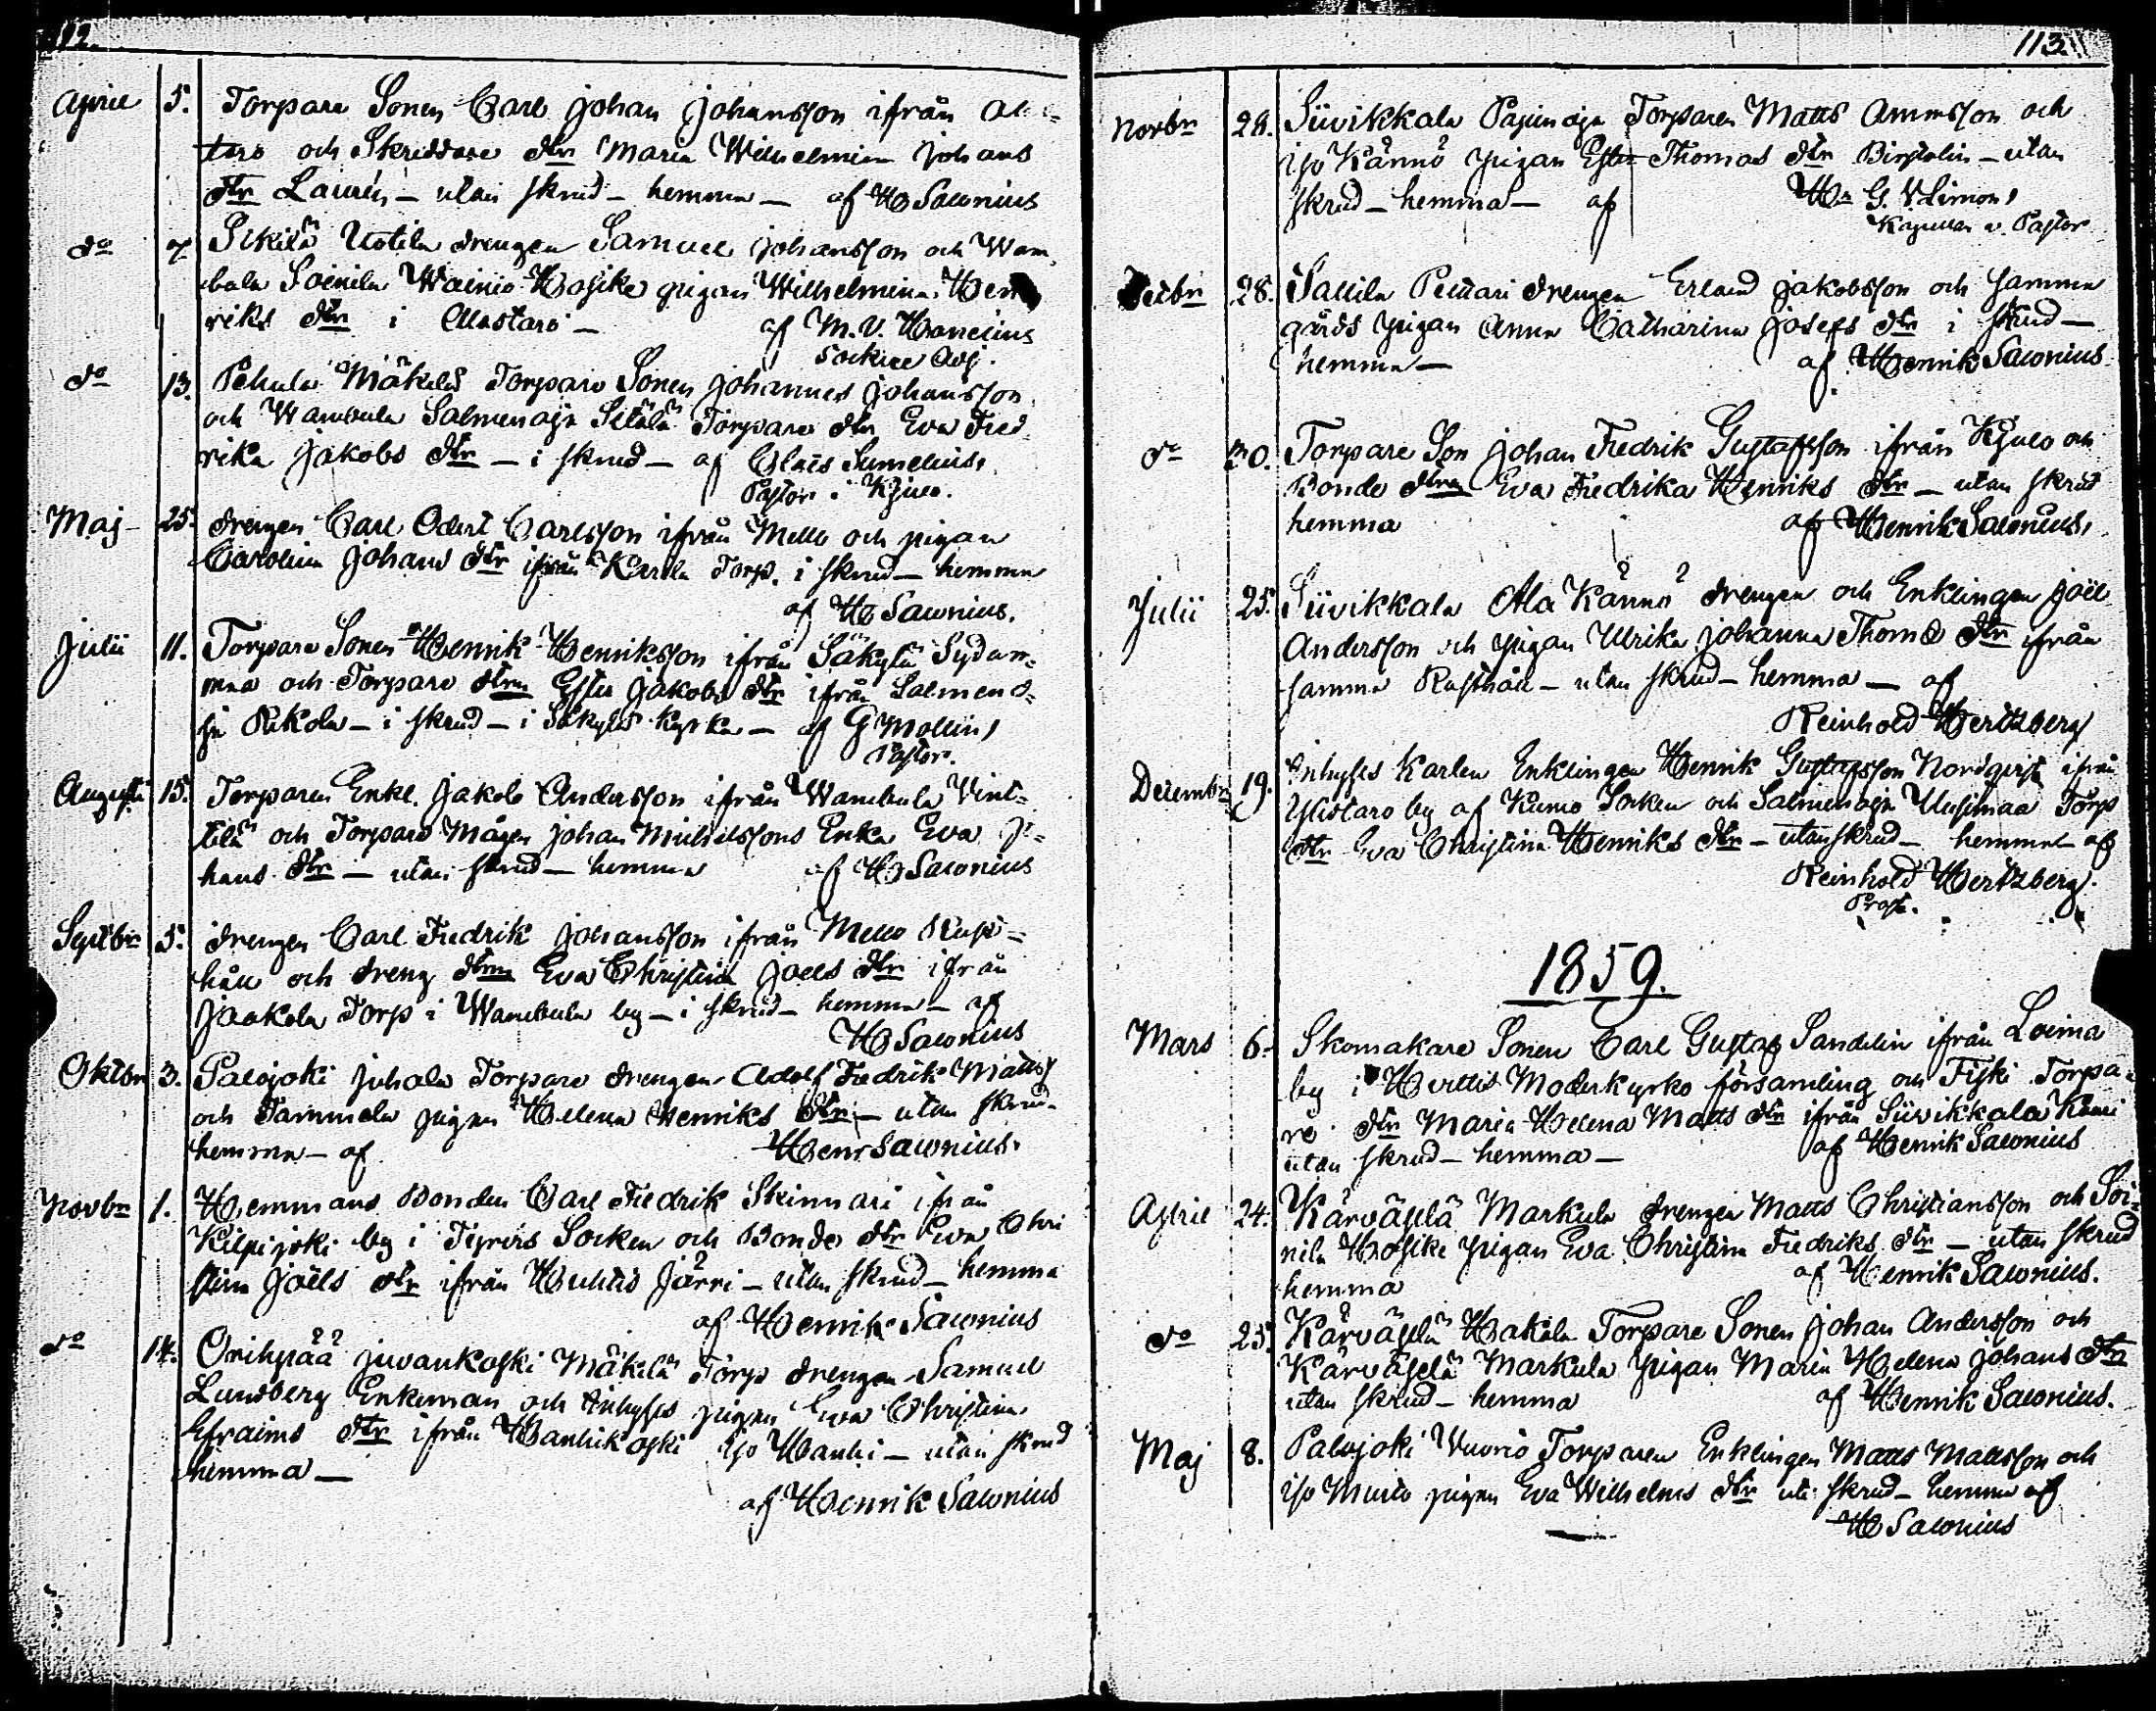 112.
April 5. Torpare Sonen Carl Johan Johansson ifrån Al-
taro och Skräddare dtr Maria Wilhelmina Johans
dtr Laurén – utan skrud – hemma – af H Salonius
do 7 Uotila drengen Samuel Johansson och Wam-
bula Soinila Wainio Hosike pigan Wilhelmina Hen
riks dtr i Alastaro – af M. V. Hancius
Sockne Adj.
do 13. Pehula Mäkelä Torpare Sonen Johannes Johansson
och Wambula Salmenoja Torpare dtr Eva Fred
rika Jakobs dtr – i skrud – af Claës Sumelius,
Pastor i Kjulo.
Maj 25. drengen Carl Carlsson ifrån Mello och pigan
Carolina Johans dtr ifrån Torp. i skrud – hemma
af H Salonius.
Julii 11. Torpare Sonen Henrik Henriksson ifrån Säkylä Sydan-
maa och Torpare dtren Ester Jakobs dtr ifrån Salmeno-
ja – i skrud – i Säkylä Kyrka – af G Mollin,
Pastor.
Augusti 15. Torparen Enkl. Jakob Andersson ifrån Wambula Vint-
tilä och Torpare Mågen Johan Michelssons Enka Eva Jo-
hans dtr – utan skrud – hemma af H Salonius
Septbr 5. drengen Carl Fredrik Johansson ifrån Mello Rust-
håll och dreng dtren Eva Christina Joels dtr ifrån
Jaakola Torp i Wambula by – i skrud – hemma – af
H Salonius
Oktbr 3. Palojoki Juhala Torpare drengen Adolf Fredrik Matts
och Tammela pigan Helena Henriks dtr – utan skrud –
hemma – af Henr Salonius.
Novbr 1. Hemmans Bonden Carl Fredrik Skinnari ifrån
Kilpijoki by i Tyrvis Socken och Bonde dtr Eva Chri
stina Joëls dtr ifrån Huhtis Järri – utan skrud – hemma
af Henrik Salonius
do 14. Orihpää Juvankoski Mäkelä Torp drengen Samuel
Lundberg Enkeman och Inhyses pigan Eva Christina
Efraims dtr ifrån Hanhikoski Iso Hanhi – utan skrud
hemma –
af Henrik Salonius
113.
Novbr 28. Siivikkala Pajunoja Torparen Matts och
Iso Kännö pigan Ester Thomas dtr – utan
skrud – hemma – af G. Limon,
Kapellan v. Pastor
28. Sallila Pelttari drengen Erland Jakobsson och samma
gårds pigan Anna Catharina Josefs dtr i skrud –
hemma – af Henrik Salonius.
do 30. Torpare Son Johan Fredrik Gustafsson ifrån Kjulo och
Bonde dtren Eva Fredrika Henriks dtr – utan skrud
hemma af Henrik Salonius,
Julii 25. Siivikkala Ala Kännö drengen och Enklingen Joël
Andersson och pigan Ulrika Johanna Thomas dtr ifrån
samma Rusthåll – utan skrud – hemma – af
Reinhold Hertzberg
Decembr 19. Inhyses Karlen Enklingen Henrik Gustafsson Nordqvist ifrån
Ylistaro by af Kumo Socken och Salmenoja Uusimaa Torp
dtr Eva Christina Henriks dtr – utan skrud – hemma af
Reinhold Hertzberg.
Prost.
1859.
Mars 6. Skomakare Sonen Carl Gustaf Sandelin ifrån Loima
by i Hvittis Moderkyrko församling och Fiski Torpa-
re dtr Maria Helena Matts dtr ifrån Siivikkala
utan skrud – hemma – af Henrik Salonius
April 24. Kärväselä Markula drengen Matts Christiansson och Soi-
nila Hosike pigan Eva Christina Fredriks dtr – utan skrud
hemma af Henrik Salonius.
do 25. Kärväselä Hakala Torpare Sonen Johan Andersson och
Kärväselä Markula pigan Maria Helena Johans dtr
utan skrud – hemma af Henrik Salonius.
Maj 8. Palojoki Vuorio Torparen Enklingen Matts Mattsson och
Iso Murto pigan Eva Wilhelms dtr skrud – hemma af
H Salonius